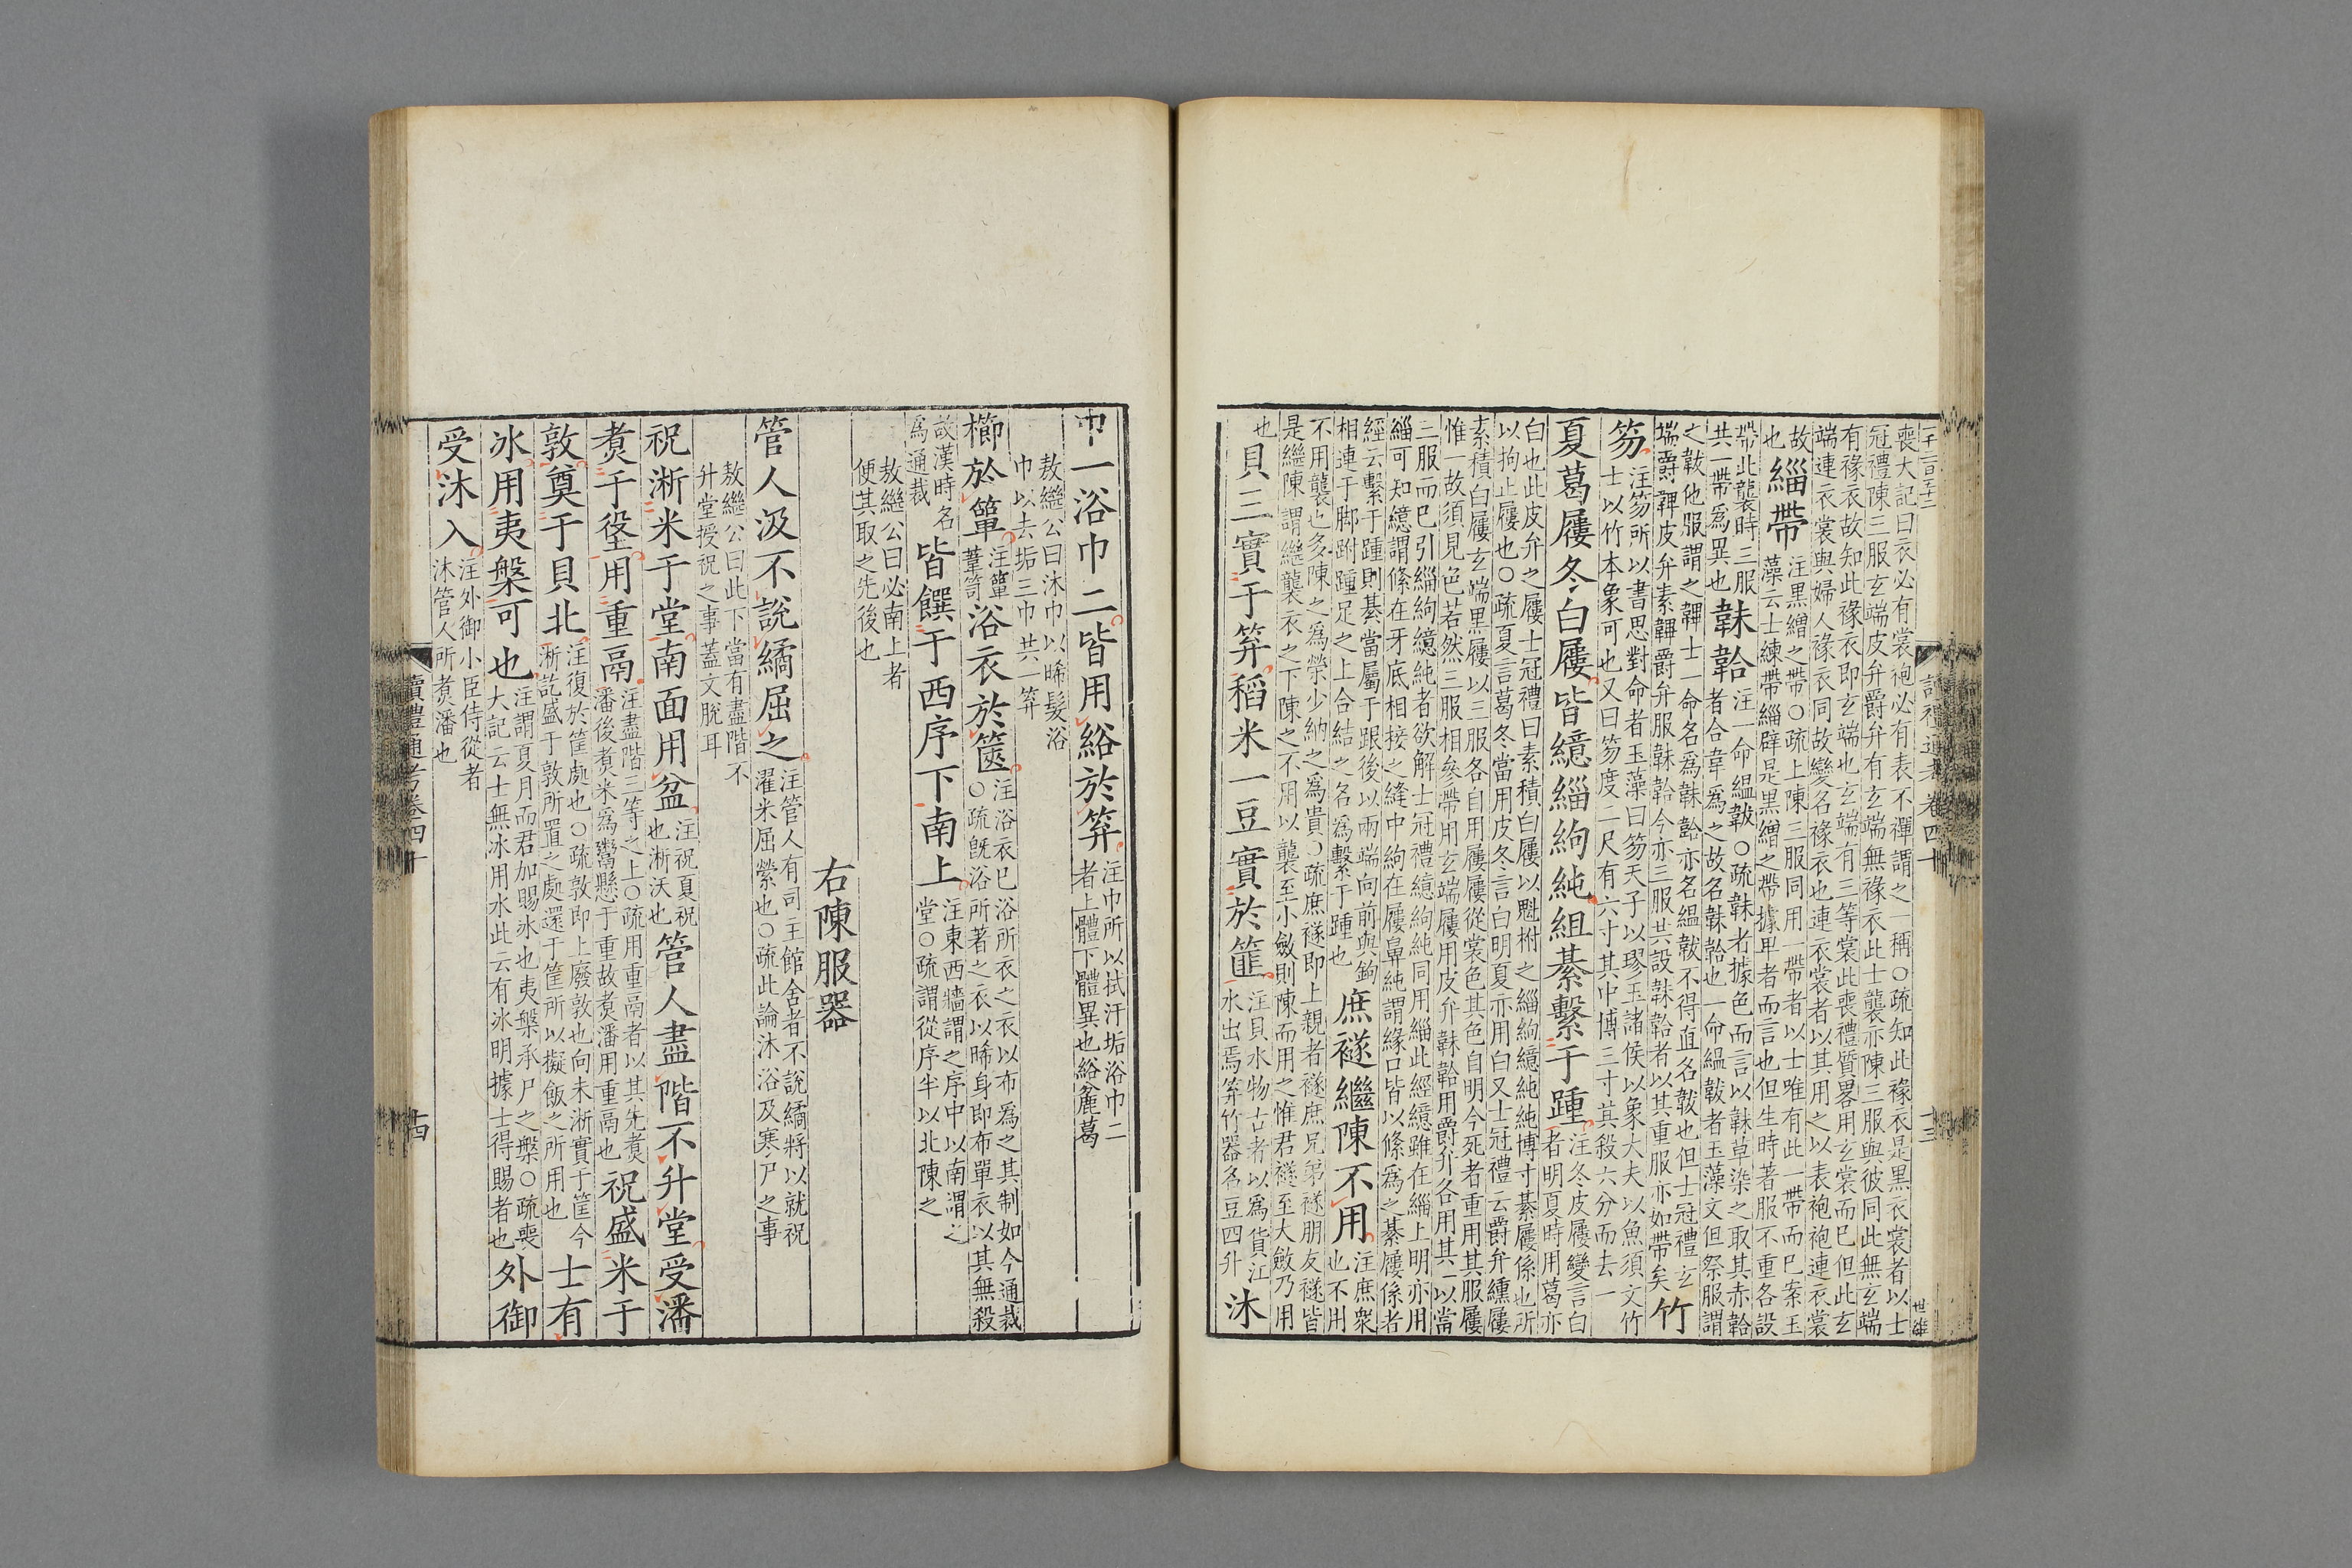 喪大記曰衣必有裳袍必有表不襌謂之一稱○疏知此褖衣是黑衣裳者以士
冠禮陳三服玄端皮弁爵弁有玄端無褖衣此士襲亦陳三服與彼同此無玄端
有褖衣故知此褖衣即玄端也玄端有三等裳此喪禮質畧用玄裳而已但此玄
端連衣裳與婦人褖衣同故變名褖衣也連衣裳者以其用之以表袍袍連衣裳
故
也
緇帶
注黑繒之帶○疏上陳三服同用一帶者以士唯有此一帶而已案玉
藻云士練帶緇辟是黑繒之帶據畢者而言也但生時著服不重各設
帶此襲時三服
共一帶爲異也
韎韐
注一命縕韍○疏韎者據色而言以韎草染之取其赤韐
者合韋爲之故名韎韐也一命縕韍者玉藻文但祭服謂
之韍他服謂之韠士一命名爲韎韐亦名縕韍不得直名韍也但士冠禮玄
端爵韠皮弁素韠爵弁服韎韐今亦三服共設韎韐者以其重服亦如帶矣
竹
笏
注笏所以書思對命者玉藻曰笏天子以璆玉諸侯以象大夫以魚須文竹
士以竹本象可也又曰笏度二尺有六寸其中博三寸其殺六分而去一
夏葛屨冬白屨皆繶緇絇純組綦繫于踵
注冬皮屨變言白
者明夏時用葛亦
白也此皮弁之屨士冠禮曰素積白屨以魁柎之緇絇繶純純博寸綦屨係也所
以拘止屨也○疏夏言葛冬當用皮冬言白明夏亦用白又士冠禮云爵弁纁屨
素積白屨玄端黑屨以三服各自用屨屨從裳色其色自明今死者重用其服屨
惟一故須見色若然三服相參帶用玄端屨用皮弁韎韐用爵弁各用其一以當
三服而已引緇絇繶純者欲解士冠禮繶絇純同用緇此經繶雖在緇上明亦用
緇可知繶謂絛在牙底相接之縫中絇在屨鼻純謂緣口皆以絛爲之綦屨係者
經云繫于踵則綦當屬于跟後以兩端向前與絇
相連于脚跗踵足之上合結之名爲繫于踵也
庶襚繼陳不用
注庶衆
也不用
不用襲也多陳之爲榮少納之爲貴○疏庶襚即上親者襚庶兄弟襚朋友襚皆
是繼陳謂繼襲衣之下陳之不用以襲至小斂則陳而用之惟君襚至大斂乃用
也
貝三實于笲稻米一豆實於篚
注貝水物古者以爲貨江
水出焉笲竹器名豆四升
沐
巾一浴巾二皆用綌於笲
注巾所以拭汗垢浴巾二
者上體下體異也綌麄葛
敖繼公曰沐巾以晞髮浴
巾以去垢三巾共一笲
櫛於簞
注簞
葦笥
浴衣於篋
注浴衣已浴所衣之衣以布爲之其制如今通裁
○疏旣浴所著之衣以晞身即布單衣以其無殺
故漢時名
爲通裁
皆饌于西序下南上
注東西牆謂之序中以南謂之
堂○疏謂從序半以北陳之
敖繼公曰必南上者
便其取之先後也
右陳服器
管人汲不說繘屈之
注管人有司主館舍者不說繘將以就祝
濯米屈縈也○疏此論沐浴及寒尸之事
敖繼公曰此下當有盡階不
升堂授祝之事蓋文脫耳
祝淅米于堂南面用盆
注祝夏祝
也淅汏也
管人盡階不升堂受潘
煑于垼用重鬲
注盡階三等之上○疏用重鬲者以其先煑
潘後煑米爲鬻懸于重故煑潘用重鬲也
祝盛米于
敦奠于貝北
注復於筐處也○疏敦即上廢敦也向未淅實于筐今
淅訖盛于敦所置之處還于筐所以擬飯之所用也
士有
冰用夷槃可也
注謂夏月而君加賜冰也夷槃承尸之槃○疏喪
大記云士無冰用水此云有冰明據士得賜者也
外御
受沐入
注外御小臣侍從者
沐管人所煑潘也
讀禮通考卷四十
十四